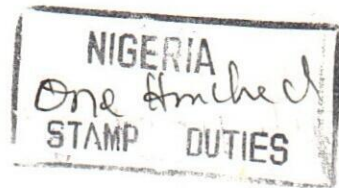 NIGERIA
One Hundred
STAMP DUTIES